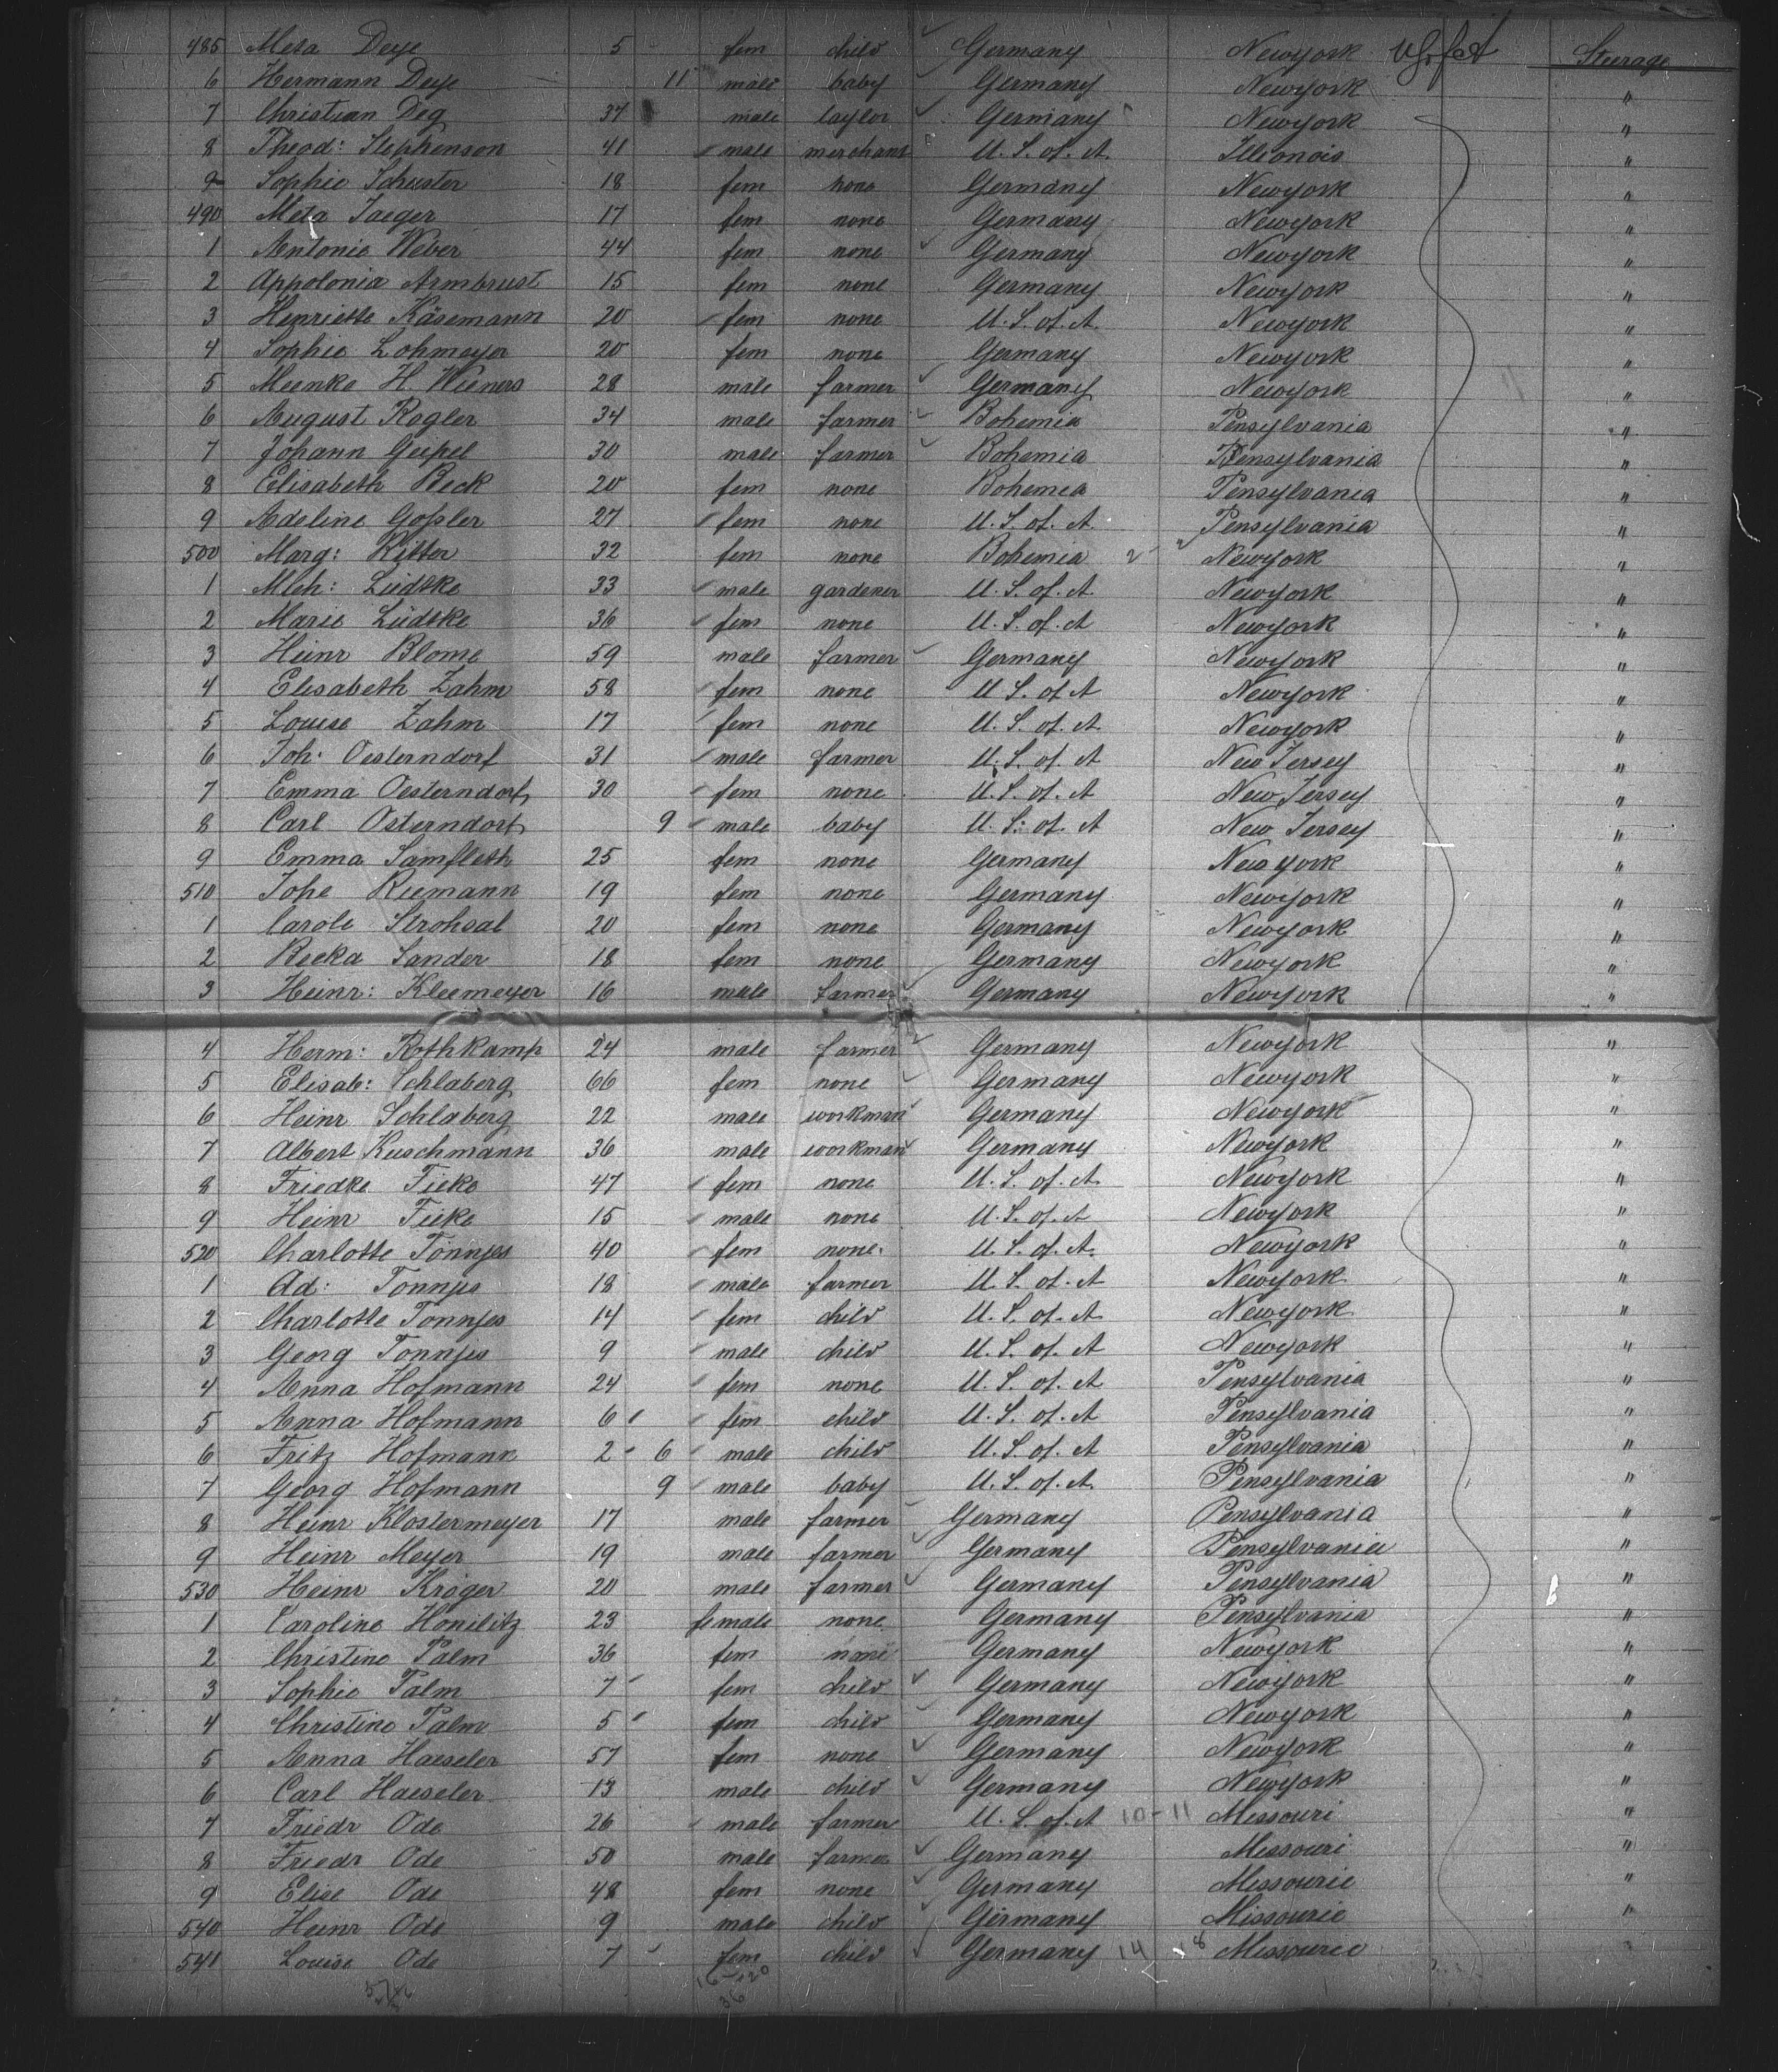 485 Meta Deye 5 fem child Germany Newyork Steerage
6 Hermann Deye 11 male baby Germany Newyork "
7 Christian Deg 37 male taylor Germany Newyork "
8 Theod: Stephenson 41 male merchant U. S. of. A. Illionois "
9 Sophie Schuster 18 fem none Germany Newyork "
490 Meta Jaeger 17 fem none Germany Newyork "
1 Antonie Weber 44 fem none Germany Newyork "
2 Appolonia Armbrust 15 fem none Germany Newyork "
3 Henriette Käsemann 20 fem none U. S. of. A. Newyork "
4 Sophie Lohmeyer 20 fem none Germany Newyork "
5 Meenke H. Wieners 28 male farmer Germany Newyork "
6 August Rogler 34 male farmer Bohemia Pensylvania "
7 Johann Geipel 30 male farmer Bohemia Pensylvania "
8 Elisabeth Beck 20 fem none Bohemia Pensylvania "
9 Adeline Goßler 27 fem none U. S. of. A. Pensylvania "
500 Marg: Ritter 32 fem none Bohemia Newyork "
1 Mch: Lüdtke 33 male gardener U. S. of. A Newyork "
2 Marie Lüdtke 36 fem none U. S. of. A Newyork "
3 Heinr Blome 59 male farmer Germany Newyork "
4 Elisabeth Zahm 58 fem none U S. of. A Newyork "
5 Louise Zahm 17 fem none U. S. of. A. Newyork "
6 Joh: Oesterndorf 31 male farmer U. S. of. A New Jersey "
7 Emma Oesterndorf 30 fem none U. S. of. A New Jersey "
8 Carl Osterndorf 9 male baby U. S. of. A New Jersey "
9 Emma Samfleth 25 fem none Germany New york "
510 Johe Riemann 19 fem none Germany Newyork "
1 Carole Strohsal 20 fem none Germany Newyork "
2 Becka Sander 18 fem none Germany Newyork "
3 Heinr: Kleemeyer 16 male farmer Germany Newyork "
4 Herm: Rothkamp 24 male farmer Germany Newyork "
5 Elisab: Schlaberg 66 fem none Germany Newyork "
6 Heinr Schlaberg 22 male workman Germany Newyork "
7 Albert Kuschmann 36 male workman Germany Newyork "
8 Friedke Tieke 47 fem none U. S. of. A. Newyork "
9 Heinr Tieke 15 male none U. S. of. A Newyork "
520 Charlotte Tönnjes 40 fem none. U. S. of. A. Newyork "
1 Ad: Tonnjes 18 male farmer U. S. of. A Newyork "
2 Charlotte Tonnjes 14 fem child U. S. of. A. Newyork "
3 Georg Tonnjes 9 male child U. S. of. A Newyork "
4 Anna Hofmann 24 fem none U. S. of. A Pensylvania "
5 Anna Hofmann 6 fem child U. S. of. A Pensylvania "
6 Fritz Hofmann 2 6 male child U. S. of. A Pensylvania "
7 Georg Hofmann 9 male baby U. S. of. A. Pensylvania "
8 Heinr Klostermeyer 17 male farmer Germany Pensylvania "
9 Heinr Meyer 19 male farmer Germany Pensylvania "
530 Heinr Kröger 20 male farmer Germany Pensylvania "
1 Caroline Honilitz 23 female none Germany Pensylvania "
2 Christine Palm 36 fem none Germany Newyork "
3 Sophie Palm 7 fem child Germany Newyork "
4 Christine Palm 5 fem child Germany Newyork "
5 Anna Haeseler 57 fem none Germany Newyork "
6 Carl Haeseler 13 male child Germany Newyork "
7 Friedr Ode 26 male farmer U. S. of. A 10-11 Missouri "
8 Friedr Ode 50 male farmer Germany Missouri "
9 Elise Ode 48 fem none Germany Missourie "
540 Heinr Ode 9 male child Germany Missourie "
541 Louise Ode 7 fem child Germany 14 18 Missourie
36